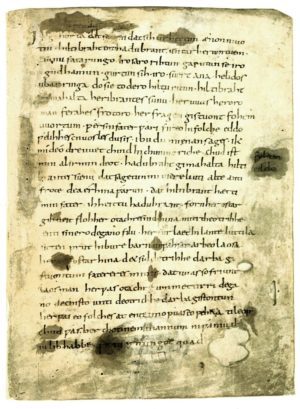 Ik gihorta dat seggen dat sih urhettun ænon muo
tin. hiltibraht enti hadubrant. untar heriun tuem.
sunu fatarungo. iro saro rihtun garutun se iro
gudhamun. gurtun sih. iro. suert ana. helidos
ubar ringa do sie to dero hiltu ritun. hiltibraht
gimahalta heribrantes sunu. her uuas heroro
man ferahes frotoro. her fragen gistuont fohem
uuortum. ƿer sin fater ƿari fireo In folche eddo
ƿelihhes cnuosles du sis. ibu du mi enan sages. ik
mi de odre uuet chind In chunincriche. chud ist
min al irmin deot. hadubraht gimahalta hilti
brantes sunu dat sagetun mi usere liuti alte anti
frote dea erhina ƿarun. dat hiltibrant hætti
min fater. ih heittu hadubrant. forn her ostar
gihueit floh her otachres nid hina miti theotrihhe
enti sinero degano filu. her furlaet In lante luttila
sitten prut In bure barn unƿahsan arbeo laosa.
her raet ostar hina d& sid detrihhe darba gi
stuontum fatereres mines. dat uuas so friunt
laos man her ƿas otachre ummettirri dega
no dechisto unti deotrichhe darba gistontun
her ƿas eo folches at ente imo ƿuas eo feh&a ti leop
chud ƿas her chonnem mannum ni ƿaniu ih
iu lib habbe ƿ&tu irmingot quad